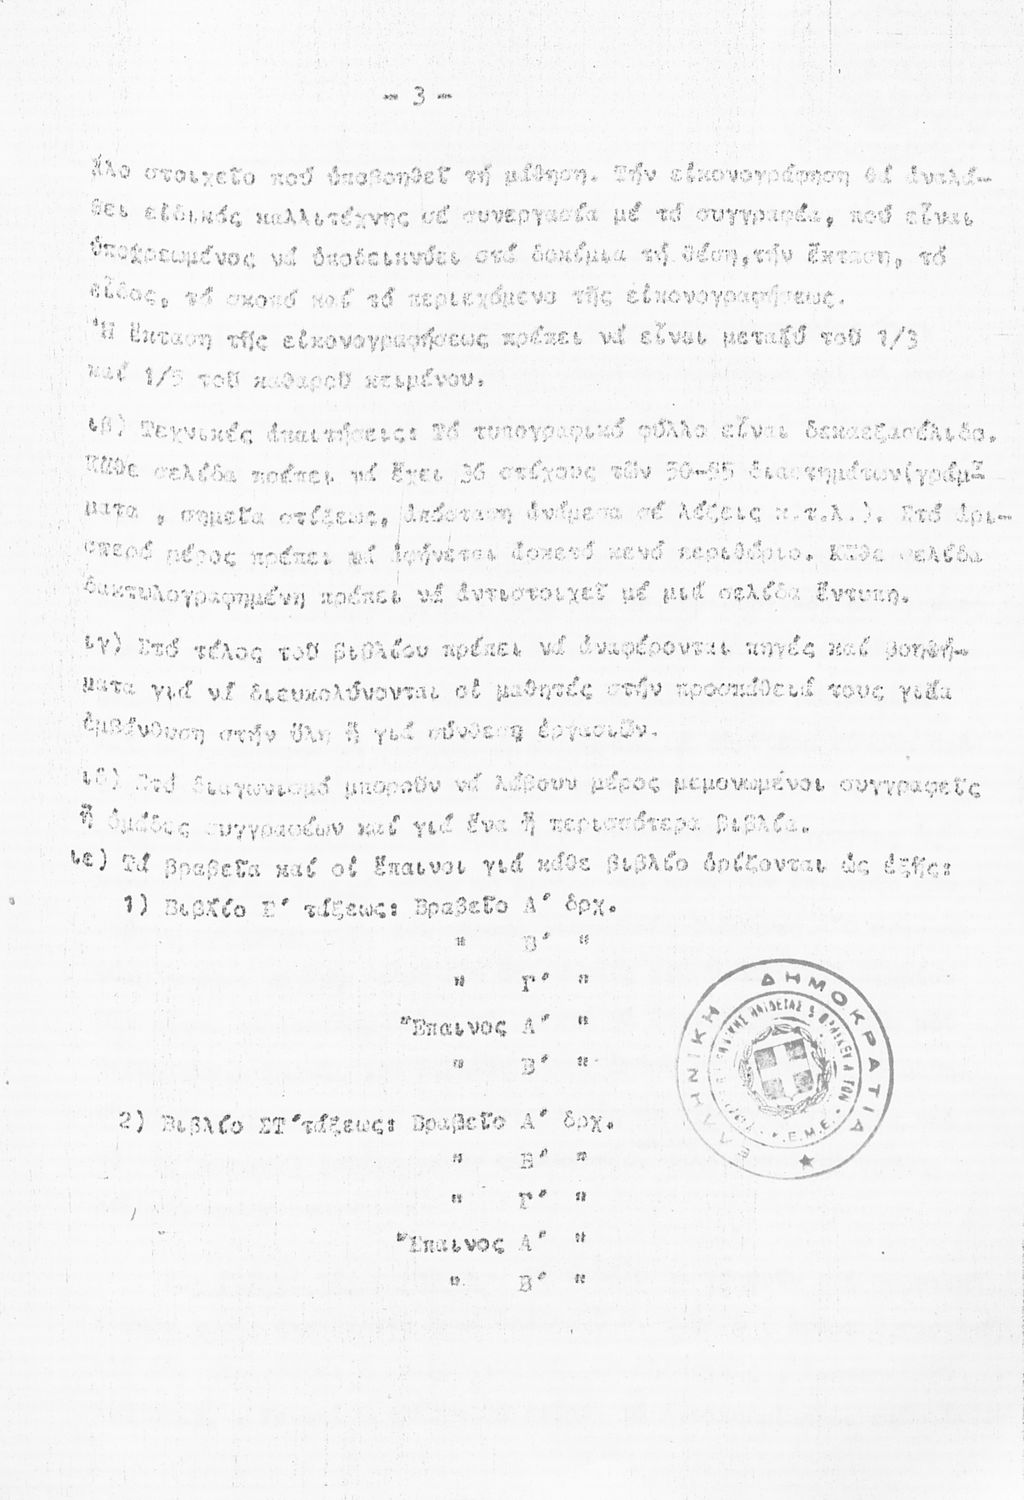 - 3 -
λλο στοιχεῖο πού ὑποβοηθεῖ τή μάθηση. Τήν εἰκονογράφηση θά ἀναλά-
βει εἰδικός καλλιτέχνης σέ συνεργασία μέ τό συγγραφέα, πού εἶναι
ὑποχρεωμένος νά ὑποδεικνύει στά δοκίμια τή θέση,τήν ἔκταση, τό
εἶδος, τό σκοπό καί τό περιεχόμενο τῆς εἰκονογραφήσεως.
Ἡ ἔκταση τῆς εἰκονογραφήσεως πρέπει νά εἶναι μεταξύ τοῦ 1/3
καί 1/5 τοῦ καθαροῦ κειμένου.
ιβ) Τεχνικές ἀπαιτήσεις: Τό τυπογραφικό φύλλο εἶναι δεκαεξασέλιδο.
Κάθε σελίδα πρέπει νά ἔχει 36 στίχους τῶν 50-55 διαστημάτων(γράμ-
ματα , σημεῖα στίξεως, ἀπόσταση ἀνάμεσα σέ λέξεις κ.τ.λ.). Στό ἀρι-
στερό μέρος πρέπει νά ἀφήνεται ἀρκετό κενό περιθώριο. Κάθε σελίδα
δακτυλογραφημένη πρέπει νά ἀντιστοιχεῖ μέ μιά σελίδα ἔντυπη.
ιγ) Στό τέλος τοῦ βιβλίου πρέπει νά ἀναφέρονται πηγές καί βοηθή-
ματα γιά νά διευκολύνονται οἱ μαθητές στήν προσπάθειά τους γιά
ἐμβάνθυση στήν ὕλη ἤ γιά σύνθεση ἐργασιῶν.
ιδ) Στό διαγωνισμό μποροῦν νά λάβουν μέρος μεμονωμένοι συγγραφεῖς
ἤ ὁμάδες συγγραφέων καί γιά ἕνα ἤ περισσότερα βιβλία.
ιε) Τά βραβεῖα καί οἱ ἔπαινοι γιά κάθε βιβλίο ὁρίζονται ὡς ἑξῆς:
1) Βιβλίο Ε΄ τάξεως: Βραβεῖο Α΄ δρχ.
" Β΄ "
" Γ΄ "
Ἔπαινος Α΄ "
" Β΄ "
2) Βιβλίο ΣΤ΄τάξεως: Βραβεῖο Α΄ δρχ.
" Β΄ "
" Γ΄ "
Ἔπαινος Α΄ "
" Β΄ "
ΕΛΛΗΝΙΚΗ ΔΗΜΟΚΡΑΤΙΑ
ΠΑΙΔΕΙΑΣ & ΘΡΗΣΚΕΥΜΑΤΩΝ
Ε.Μ.Ε.